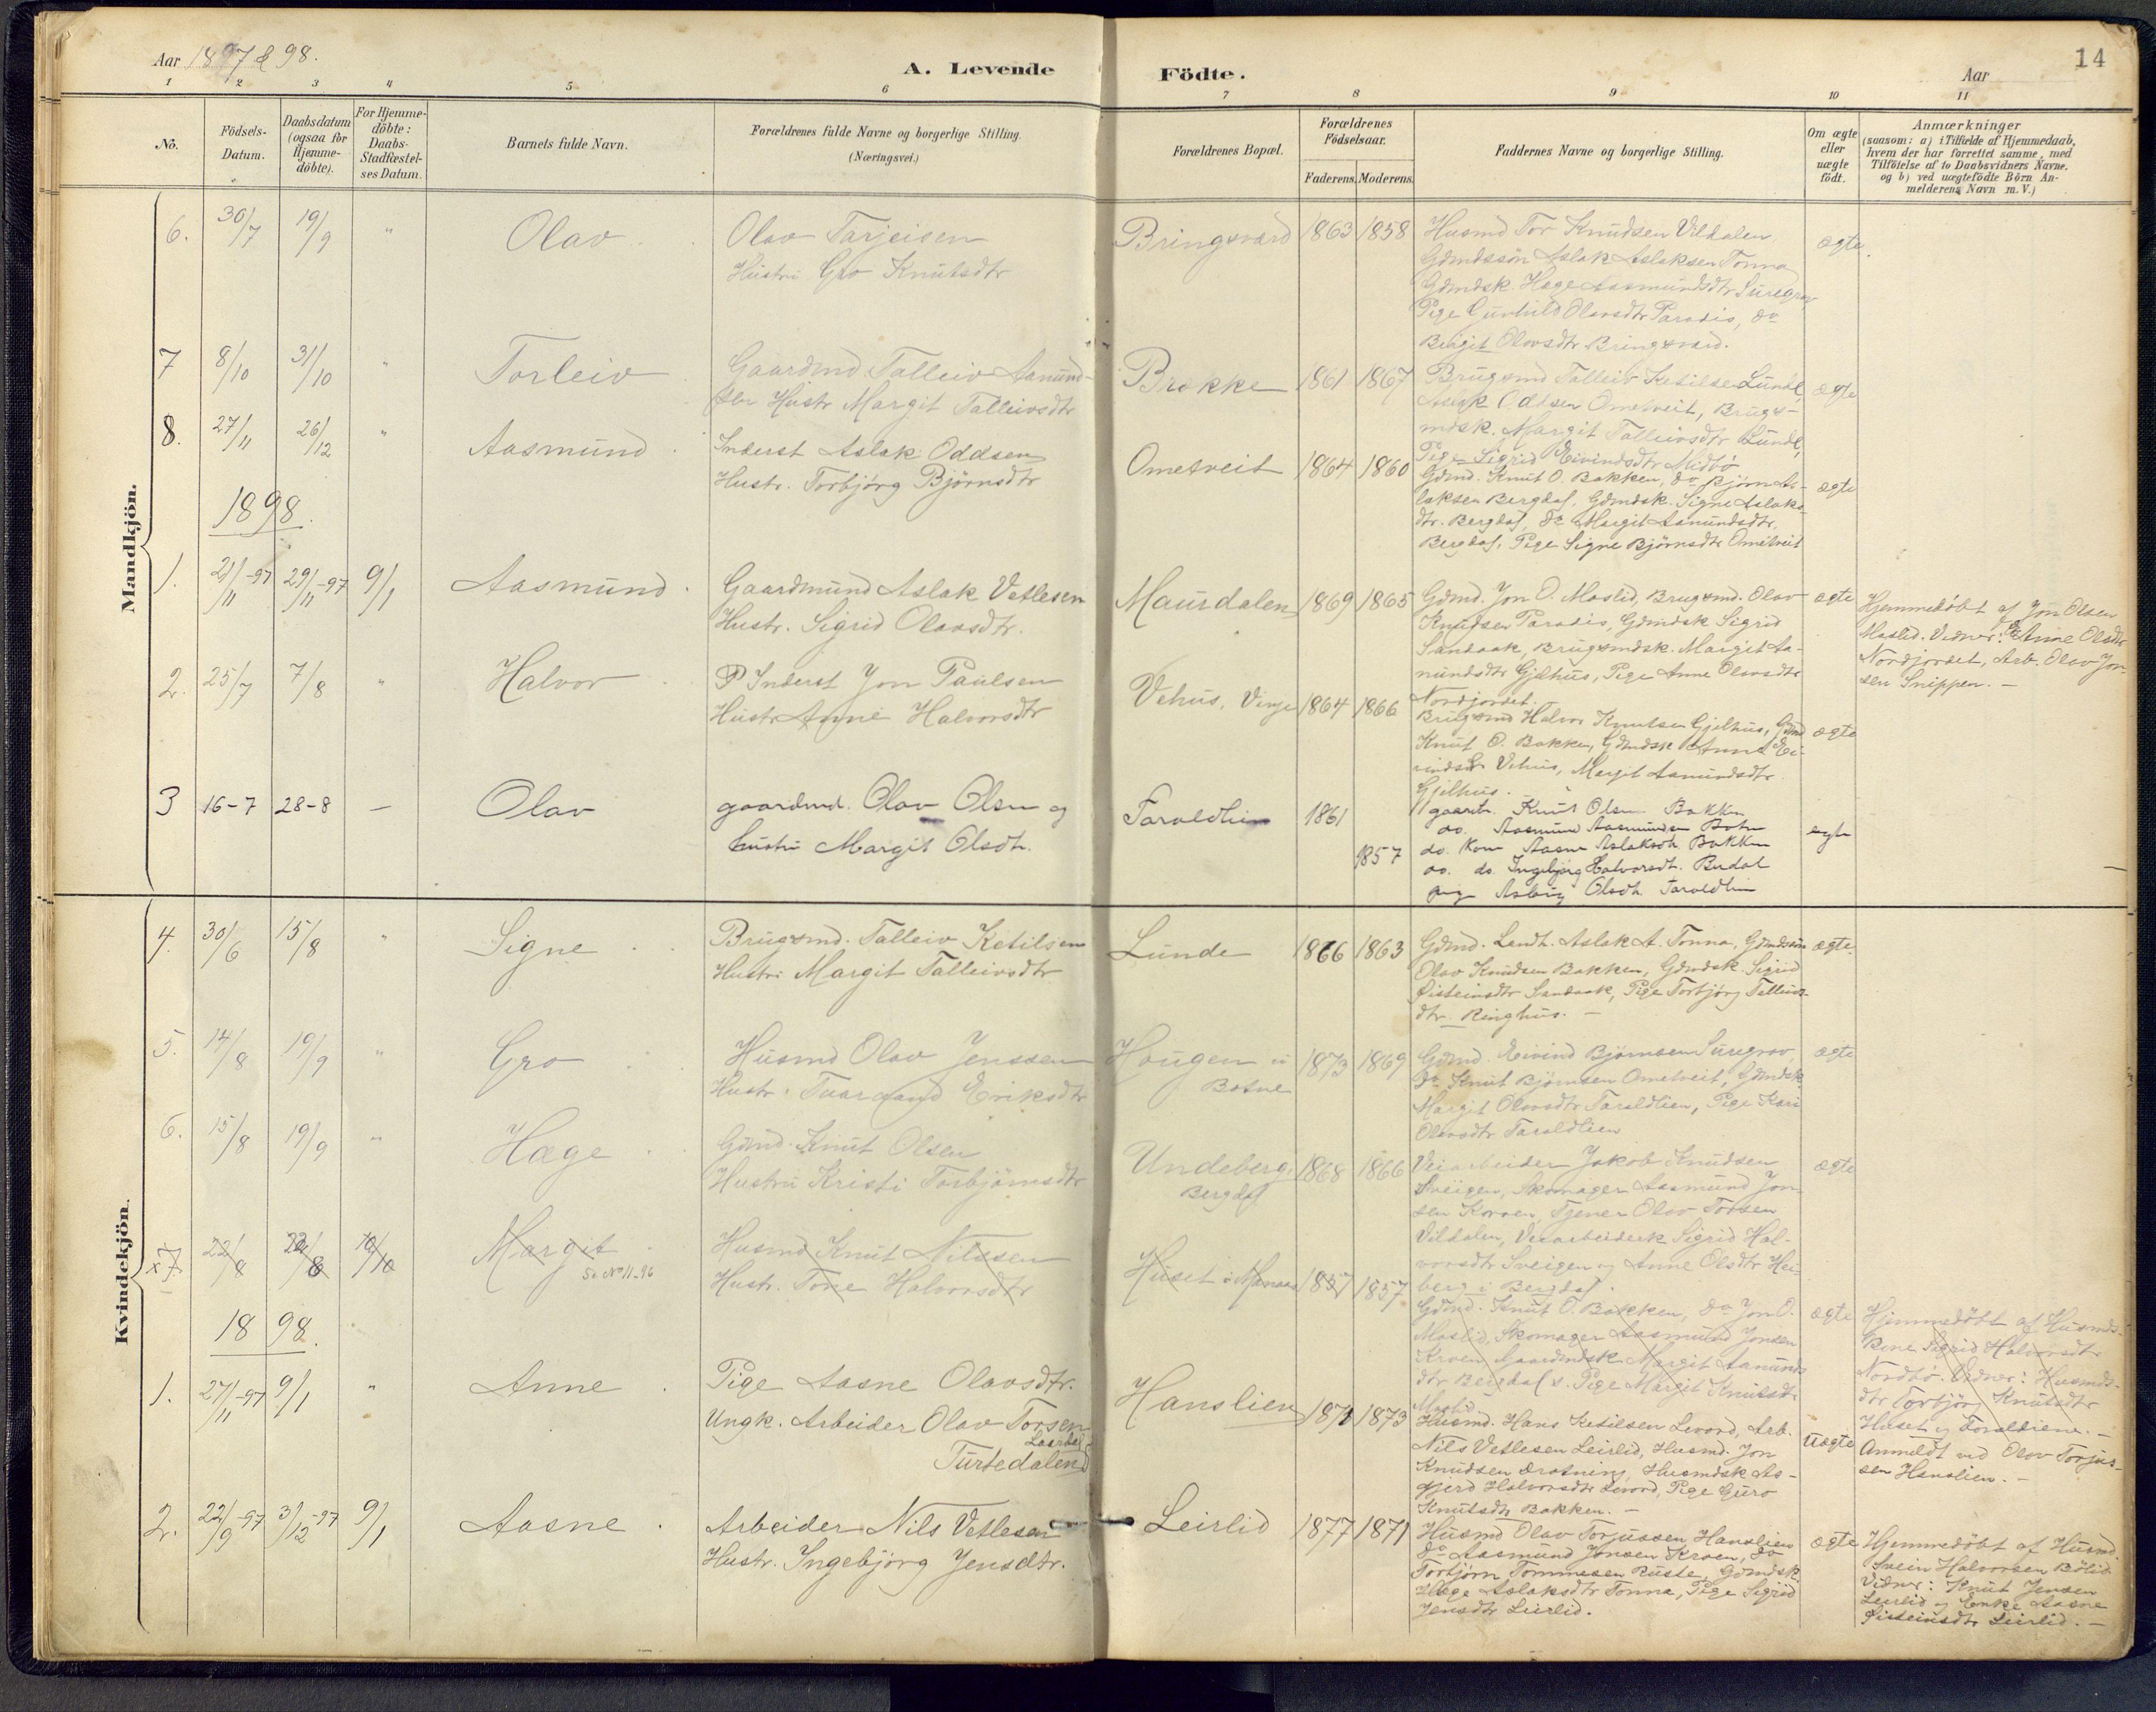 Aar 1897 & 98.
A. Levende Födte.
Aar
14
1 2 3 4 5 6 7 8 9 10 11
No.
Födsels-Datum.
Daabsdatum (ogsaa for Hjemme-döbte).
For Hjemme-döbte: Daabs-Stadfæstel-ses Datum.
Barnets fulde Navn.
Forældrenes fulde Navne og borgerlige Stilling.
(Næringsvei.)
Forældrenes Bopæl.
Forældrenes Födselsaar.
Faderens. Moderens.
Faddernes Navne og borgerlige Stilling.
Om ægte eller uægte födt.
Anmærkninger
(saasom: a) i Tilfælde af Hjemmedaab,
hvem der har forrettet samme, med
Tilföielse af to Daabsvidners Navne,
og b) ved uægtefödte Börn An-
melderens Navn m. V.)
Mandkjön.
6. 30/7 19/9 " Olav
Olav Tarjeisen
Hustru Gro Knutsdtr
Bringsværd 1863 1858
Husmd Tor Knudsen Vildalen
Gdmdssön Aslak Aslaksen Tonna
Gdmdsk. Hæge Aasmundsdtr Suregrav,
Pige Gunhild Olavsdtr Paradis, do
Birgit Olavsdtr Bringsværd.
ægte
7 8/10 31/10 " Torleiv
Gaardmd Talleiv Aamund-
sen Hustr Margit Talleivsdtr
Brokke 1861 1867
Brugsmd Talleiv Ketilsen Lunde,
Oddsen Ometveit, Brugs-
mdsk. Margit Talleivsdtr Lunde,
Pige Sigrid Eivindsdtr Midbö
ægte
8. 27/11 26/12 " Aasmund
Inderst Aslak Oddsen
Hustr. Torbjörg Björnsdtr
Ometveit 1864 1860
Gdmd. Knut O. Bakken, do Björn As-
laksen Bergdal, Gdmdsk. Signe Aslaks-
dtr. Bergdal, do Margit Aamundsdtr.
Bergdal, Pige Signe Björnsdtr Ometveit
ægte
1898.
1. 21/11-97 29/11-97 9/1 Aasmund
Gaardmund Aslak Vetlesen
Hustr. Sigrid Olavsdtr.
Maurdalen 1869 1865
Gdmd. Jon O. Moslid, Brugsmd. Olav
Knudsen Paradis, Gdmdsk Sigrid
Sandaak, Brugsmdsk. Margit Aa-
mundsdtr Gjelhus, Pige Anne Olavsdtr
Nordjordet.
ægte
Hjemmedöbt af Jon Olsen
Moslid. Vidner: Anne Olsdtr
Nordjordet, Arb. Olav Jon-
sen Snippen. —
2. 25/7 7/8 " Halvor
Inderst Jon Paulsen
Hustr Anne Halvorsdtr
Vehus, Vinje 1864 1866
Brugsmd Halvor Knutsen Gjelhus, Gdmd
Knut O. Bakken, Gdmdsk Anne Ei-
vindsdtr Vehus, Margit Aamundsdtr
Gjelhus.
ægte
3 16-7 28-8 — Olav
gaardmd. Olav Olsen og
hustru Margit Olsdtr.
Taraldlien 1861 1857
gaardbr. Knut Olsen Bakken
do. Aasmund Aasmundsen Botn
do. Kone Aasne Aslaksdtr. Bakken
do. do. Ingebjörg Halvorsdtr. Berdal
pige Olsdtr. Taraldlien
ægte
Kvindekjön.
4. 30/6 15/8 " Signe
Brugsmd. Talleiv Ketilsen
Hustru Margit Talleivsdtr
Lunde 1866 1863
Gdmd. Landh. Aslak A. Tonna, Gdmdssön
Olav Knudsen Bakken, Gdmdsk. Sigrid
Öisteinsdtr Sandaak, Pige Torbjörg Talleivs-
dtr. Ringhus. —
ægte.
5. 14/8 19/9 " Gro
Husmd Olav Jenssen
Hustr. Tuaraand Eriksdtr
Haugen u Botne 1873 1869
Gdmd. Eivind Björnsen Suregrav,
do Knut Björnsen Ometveit, Gdmdsk
Margit Olavsdtr Taraldlien, Pige Kari
Olavsdtr Taraldlien
ægte
6. 15/8 19/9 " Hæge
Gdmd. Knut Olsen
Hustru Kristi Torbjörnsdtr
Undeberg, Bergdal 1868 1866
Veiarbeider Jakob Knudsen
Sveigen, Skomager Aasmund Jon-
sen Kroen, Tjener Olav Torsen
Vildalen, Veiarbeidersk Sigrid Hal-
vorsdtr Sveigen og Anne Olsdtr Hei-
berg i Bergdal.
ægte
x7 22/8 22/8 10/10 Margit
Se No 11-96
Husmd Knut Nilssen
Hustr. Tone Halvorsdtr
Huset u Manaas 1857 1857
Gdmd. Knut O. Bakken, do Jon O.
Moslid, Skomager Aasmund Jonsen
Kroen, Gaardmdsk Margit Aamunds
dtr Bergdal, Pige Margit Knutsdtr
Moslid.
ægte
Hjemmedöbt af Husmds-
Kone Sigrid Halvorsdtr
Nordbö. Vidner: Husmds-
dtr Torbjörg Knutsdtr
Huset og Forældrene. —
1898.
1. 27/11-97 9/1 " Anne
Pige Aasne Olavsdtr.
Ungk. Arbeider Olav Torsen
Turtedalen
Hanslien 1871 1873
Husmd. Hans Ketilsen Levord, Arb.
Nils Vetlesen Leirlid, Husmd. Jon
Knudsen Drotning, Husmdsk As-
gjerd Halvorsdtr Levord, Pige Guro
Knutsdtr Bakken. —
Uægte
Anmeldt ved Olav Torjus-
sen Hanslien. —
2. 22/9-97 3/12-97 9/1 Aasne
Arbeider Nils Vetlesen
Hustr. Ingebjörg Jensdtr.
Leirlid 1877 1871
Husmd Olav Torjussen Hanslien
do Aasmund Jonsen Kroen, do
Torbjörn Tommesen Ruste, Gdmdsk.
Hæge Aslaksdtr Tonna, Pige Sigrid
Jensdtr Leirlid.
ægte
Hjemmedöbt af Husmd.
Svein Halvorsen Bölid
Vidner: Knut Jensen
Leirlid og Enke Aasne
Öisteinsdtr Leirlid. —